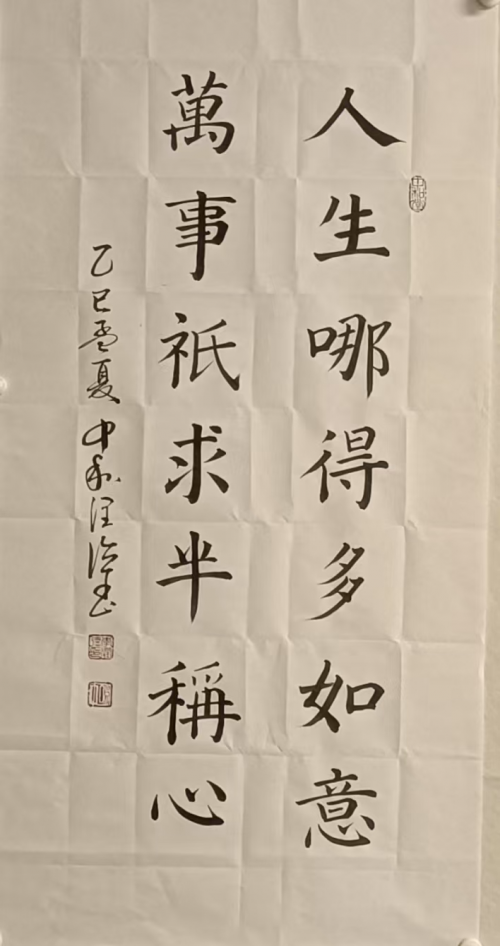 人生哪得多如意
萬事祇求半稱心
乙巳孟夏中和汪